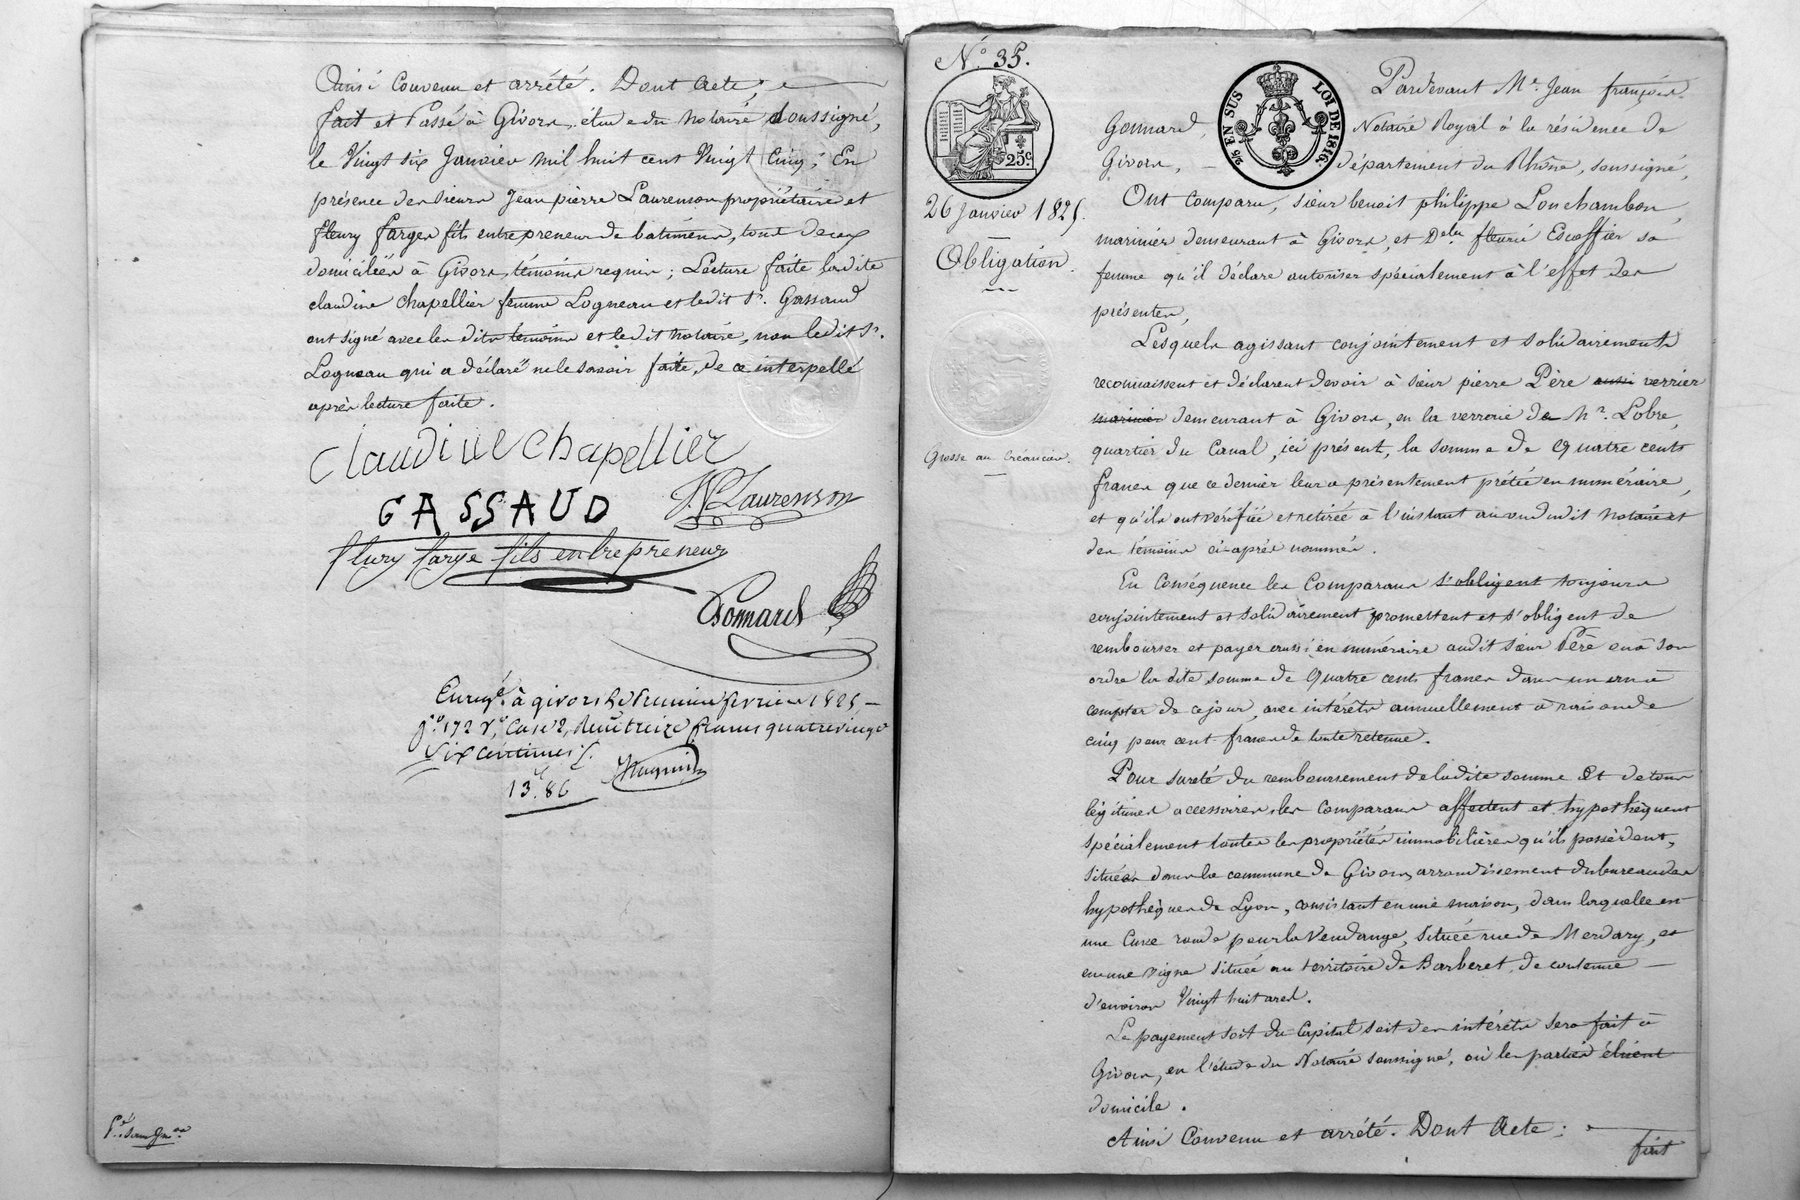 Ainsi convenu et arrêté. Dont Acte ;
fait et Passé à Givors, étude du Notaire soussigné,
le Vingt six Janvier mil huit cent Vingt Cinq ; En
présence des sieurs Jean pierre Laurenson propriétaire et
fleury farge fils entrepreneur de batimens, tous deux
domiciliés à Givors, témoins requis ; Lecture faite ladite
claudine chapellier femme Logneau et ledit Sr. Gassaud
ont signé avec les dits témoins et ledit notaire, non ledit Sr.
Logneau qui a déclaré ne le savoir faire, de ce interpellé
après lecture faite.
Claudine chapellier
GASSAUD
JP Laurenson
fleury farge fils entrepreneur
Gonnard
Enregé. à givors le premier fevrier 1825
fo. 172 vo. Case 2, Reçu treize francs quatre vingt
six centimes
13.86
No. 35.
25c
2/5 EN SUS LOI DE 1816.
26 Janvier 1825.
Obligation.
Grosse au Créancier.
Pardevant Me. Jean françois
Gonnard, Notaire Royal à la résidence de
Givors, département du Rhône, soussigné,
Ont comparu, sieur benoit philippe Lonchambon,
marinier demeurant à Givors, et Delle fleurie Escoffier sa
femme qu'il déclare autoriser spécialement à l'effet des
présentes,
Lesquels agissant conjointement et solidairement
reconnaissent et déclarent devoir à sieur pierre Père aussi verrier
marinier demeurant à Givors, en la verrerie de Mr. Lobre,
quartier du Canal, ici présent, la somme de Quatre cents
francs que ce dernier leur a présentement prêtée en numéraire,
et qu'ils ont vérifiée et retirée à l'instant au vu dudit notaire et
des témoins ci-après nommés.
En Conséquence les Comparans s'obligent toujours
conjointement et solidairement promettent et s'obligent de
rembourser et payer aussi en numéraire audit sieur Père ou à son
ordre la dite somme de Quatre cents francs dans un an à
compter de ce jour, avec intérêts annuellement à raison de
cinq pour cent francs de toute retenue.
Pour sureté du remboursement de ladite somme Et de tous
légitimes accessoires, les comparans affectent et hypothèquent
spécialement toutes les propriétés immobilières qu'ils possèdent,
situées dans la commune de Givors, arrondissement du bureau des
hypothèques de Lyon, consistant en une maison, dans laquelle est
une Cuve ronde pour la Vendange, située rue de Merdary, et
en une vigne située au territoire de Barberet, de contenue
d'environ Vingt huit ares.
Le payement soit du Capital soit des intérêts sera fait à
Givors, en l'étude du Notaire soussigné, où les parties élisent
domicile.
Ainsi Convenu et arrêté. Dont Acte ;
fait